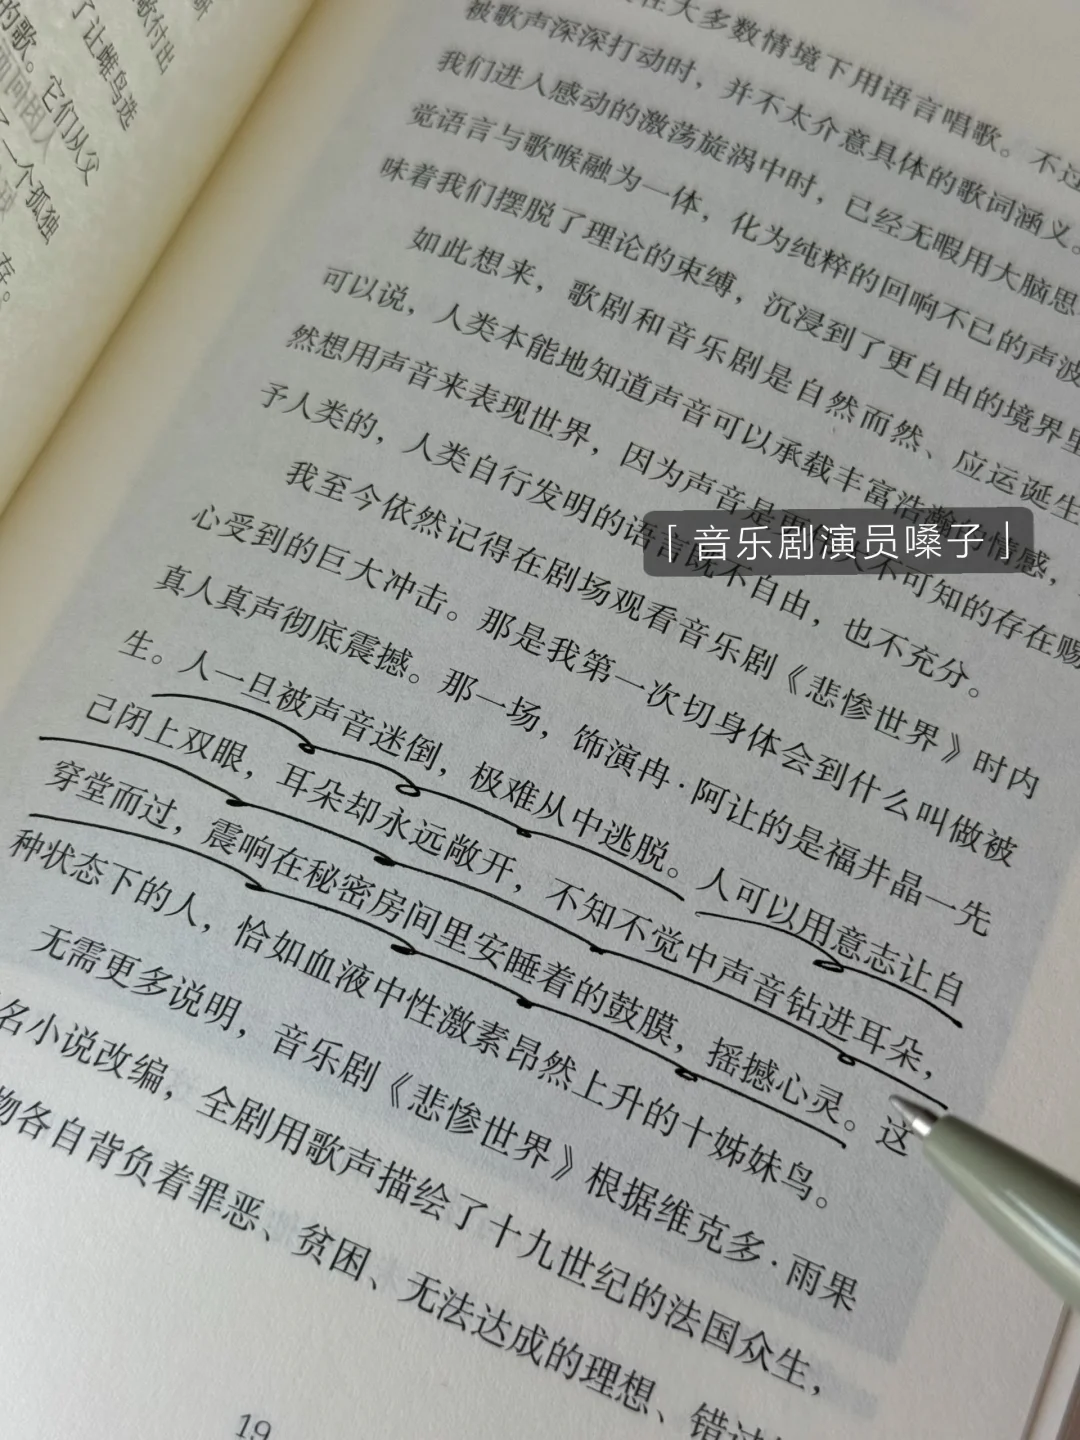 歌付出
了让雌鸟选
的歌。它们从父
了一个孤独
存。
在大多数情境下用语言唱歌。不过
被歌声深深打动时，并不太介意具体的歌词涵义。
我们进入感动的激荡旋涡中时，已经无暇用大脑思
觉语言与歌喉融为一体，化为纯粹的回响不已的声波
味着我们摆脱了理论的束缚，沉浸到了更自由的境界里
如此想来，歌剧和音乐剧是自然而然、应运诞生
可以说，人类本能地知道声音可以承载丰富浩瀚的情感，
然想用声音来表现世界，因为声音是更不可知的存在赐
予人类的，人类自行发明的语言既不自由，也不充分。
「音乐剧演员嗓子」
我至今依然记得在剧场观看音乐剧《悲惨世界》时内
心受到的巨大冲击。那是我第一次切身体会到什么叫做被
真人真声彻底震撼。那一场，饰演冉·阿让的是福井晶一先
生。人一旦被声音迷倒，极难从中逃脱。人可以用意志让自
己闭上双眼，耳朵却永远敞开，不知不觉中声音钻进耳朵，
穿堂而过，震响在秘密房间里安睡着的鼓膜，摇撼心灵。这
种状态下的人，恰如血液中性激素昂然上升的十姊妹鸟。
无需更多说明，音乐剧《悲惨世界》根据维克多·雨果
名小说改编，全剧用歌声描绘了十九世纪的法国众生，
物各自背负着罪恶、贫困、无法达成的理想、错过
19